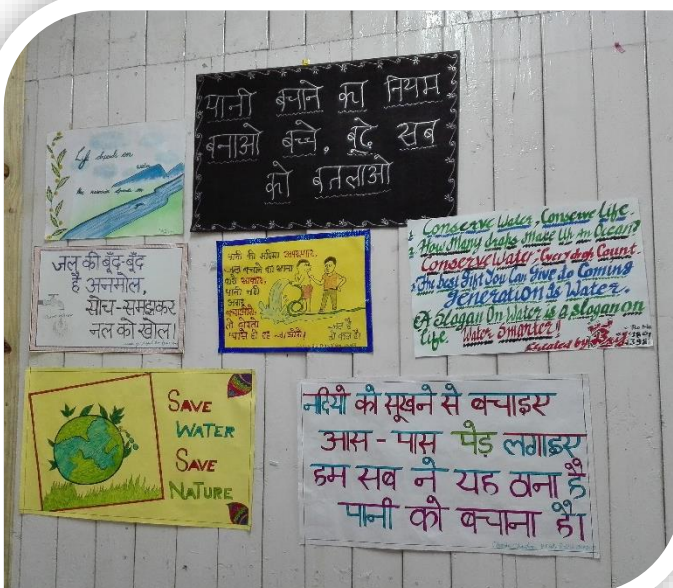 पानी बचाने का नियम
बनाओ बच्चे, बूढे सब
को बतलाओ
Life depends on
water
जल की बूँद-बूँद
है अनमोल,
सोच-समझकर
नल को खोल।
पानी की महिमा
पानी नही
Conserve Water, Conserve Life.
How Many drops Make Up An Ocean?
Conserve Water: Every drop Count.
The best Gift You Can Give to Coming
Generation Is Water.
A Slogan On Water is a Slogan on
Life. Water Smarter!
Created by
SAVE
WATER
SAVE
NATURE
नदियो को सूखने से बचाइए
आस-पास पेड़ लगाइए
हम सब ने यह ठाना है
पानी को बचाना है।